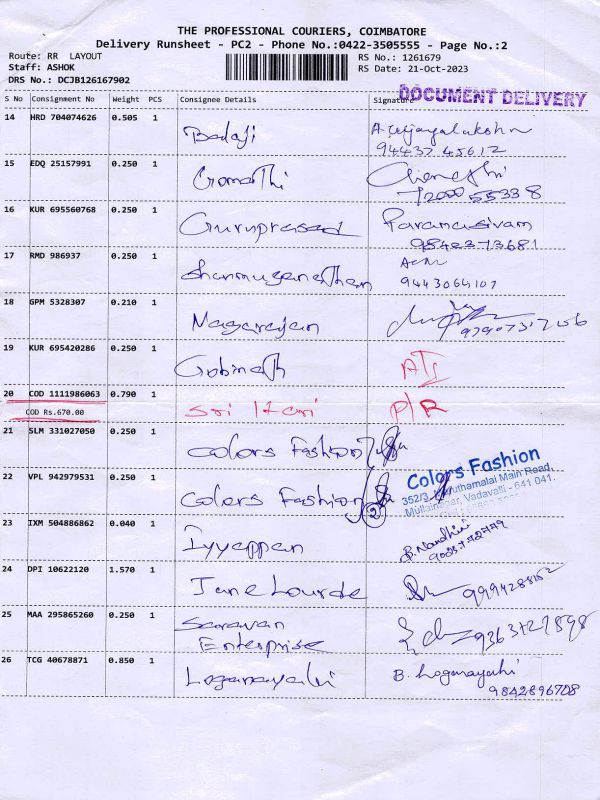 THE PROFESSIONAL COURIERS, COIMBATORE
Delivery Runsheet - PC2 - Phone No.:0422-3505555 - Page No.:2
Route: RR LAYOUT
Staff: ASHOK
DRS No.: DCJB126167902
RS No.: 1261679
RS Date: 21-Oct-2023
DOCUMENT DELIVERY
S No Consignment No Weight PCS Consignee Details Signature
14 HRD 704074626 0.505 1 Badaji
94437 45612
15 EDQ 25157991 0.250 1 Gomathi
72000 55338
16 KUR 695560768 0.250 1 Guruprasad Paramasivam
9842373681
17 RMD 986937 0.250 1 Shanmuganathan
9443064107
18 GPM 5328307 0.210 1 Nagarajan
19 KUR 695420286 0.250 1 Gobinath
20 COD 1111986063 0.790 1 Sri Hari P/R
COD Rs.670.00
21 SLM 331027050 0.250 1 Colors Fashion
22 VPL 942979531 0.250 1 Colors Fashion 2
Colors Fashion
352/3, Main Road,
Vadavalli - 641 041.
23 IXM 504886862 0.040 1 Iyyappan B. Nandhini
24 DPI 10622120 1.570 1 Jane Lourde
25 MAA 295865260 0.250 1 Saravan
Enterprise
26 TCG 40678871 0.850 1 Loganayaki B. Loganayahi
9842896708